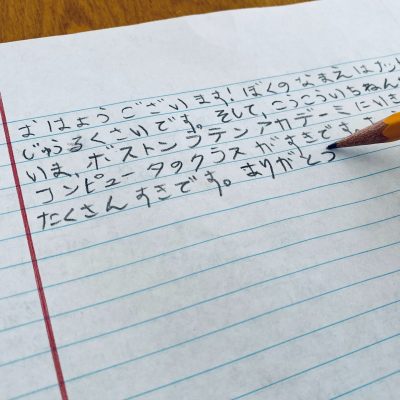 おはようございます!ぼくのなまえはナット
じゅうろくさいです。そして、こうこういちねんせ
いま、ボストンラテンアカデーミにいき
コンピュータのクラスがすきです。
たくさんすきです。ありがとう